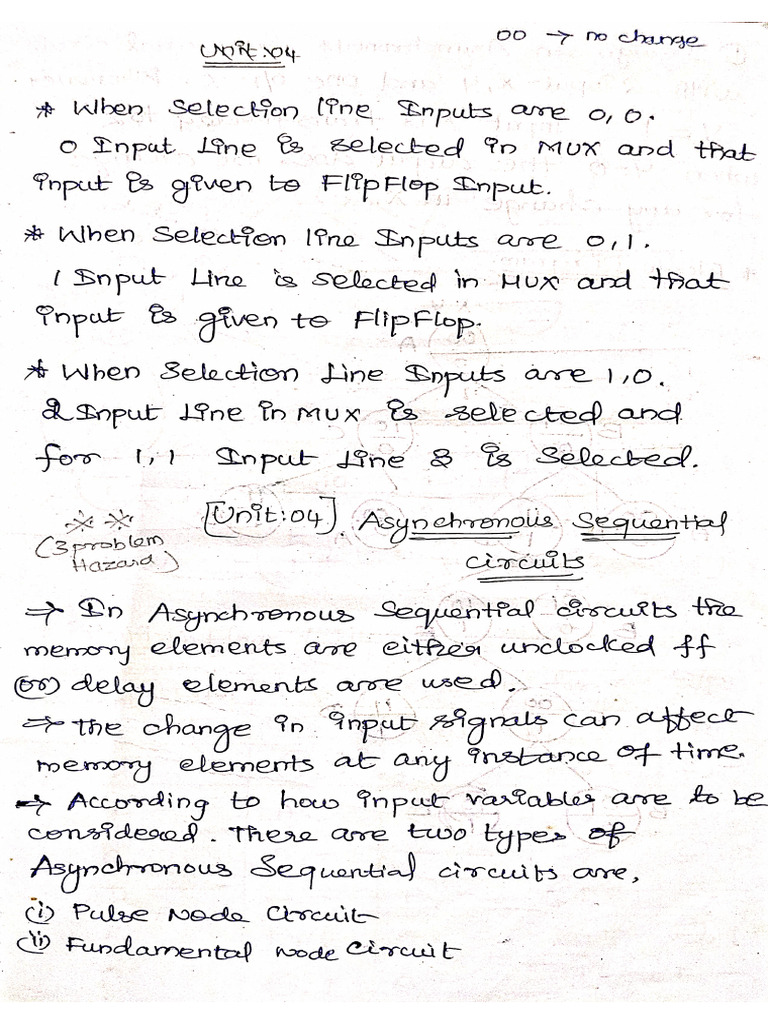 00 → no change
Unit:04
* When Selection line Inputs are 0,0.
0 Input Line is selected in MUX and that
input is given to FlipFlop Input.
* When Selection line Inputs are 0,1.
1 Input Line is selected in MUX and that
input is given to FlipFlop.
* When Selection Line Inputs are 1,0.
2 Input Line in MUX is selected and
for 1,1 Input Line 3 is selected.
[Unit:04]. Asynchronous Sequential
circuits
** **
(3 problem
Hazard)
→ In Asynchronous Sequential circuits the
memory elements are either unclocked ff
(or) delay elements are used.
→ the change in input signals can affect
memory elements at any instance of time.
→ According to how input variables are to be
considered. There are two types of
Asynchronous Sequential circuits are,
(i) Pulse Node Circuit
(ii) Fundamental Node Circuit